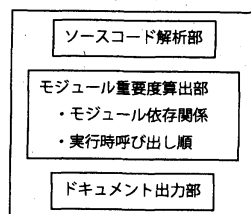 ソースコード解析部
モジュール重要度算出部
・モジュール依存関係
・実行時呼び出し順
ドキュメント出力部